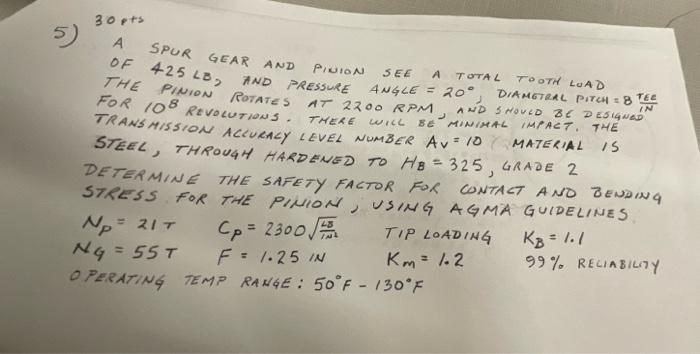 30 pts
5) A SPUR GEAR AND PINION SEE A TOTAL TOOTH LOAD
OF 425 LB, AND PRESSURE ANGLE = 20°, DIAMETRAL PITCH = 8 TEE/IN
THE PINION ROTATES AT 2200 RPM, AND SHOULD BE DESIGNED
FOR 10^8 REVOLUTIONS. THERE WILL BE MINIMAL IMPACT. THE
TRANSMISSION ACCURACY LEVEL NUMBER Av = 10 MATERIAL IS
STEEL, THROUGH HARDENED TO HB = 325, GRADE 2
DETERMINE THE SAFETY FACTOR FOR CONTACT AND BENDING
STRESS FOR THE PINION, USING AGMA GUIDELINES.
Np = 21T Cp = 2300 √(LB/IN²) TIP LOADING KB = 1.1
NG = 55T F = 1.25 IN Km = 1.2 99% RELIABILITY
OPERATING TEMP RANGE: 50°F - 130°F